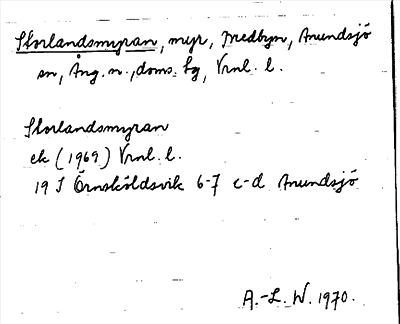 Storlandsmyran, myr, Bredbyn, Anundsjö
sn, Ång. n., doms. lg, Vrnl. l.
Storlandsmyran
ek (1969) Vrnl. l.
19 J Örnsköldsvik 6-7 c-d Anundsjö
A.-L. W. 1970.